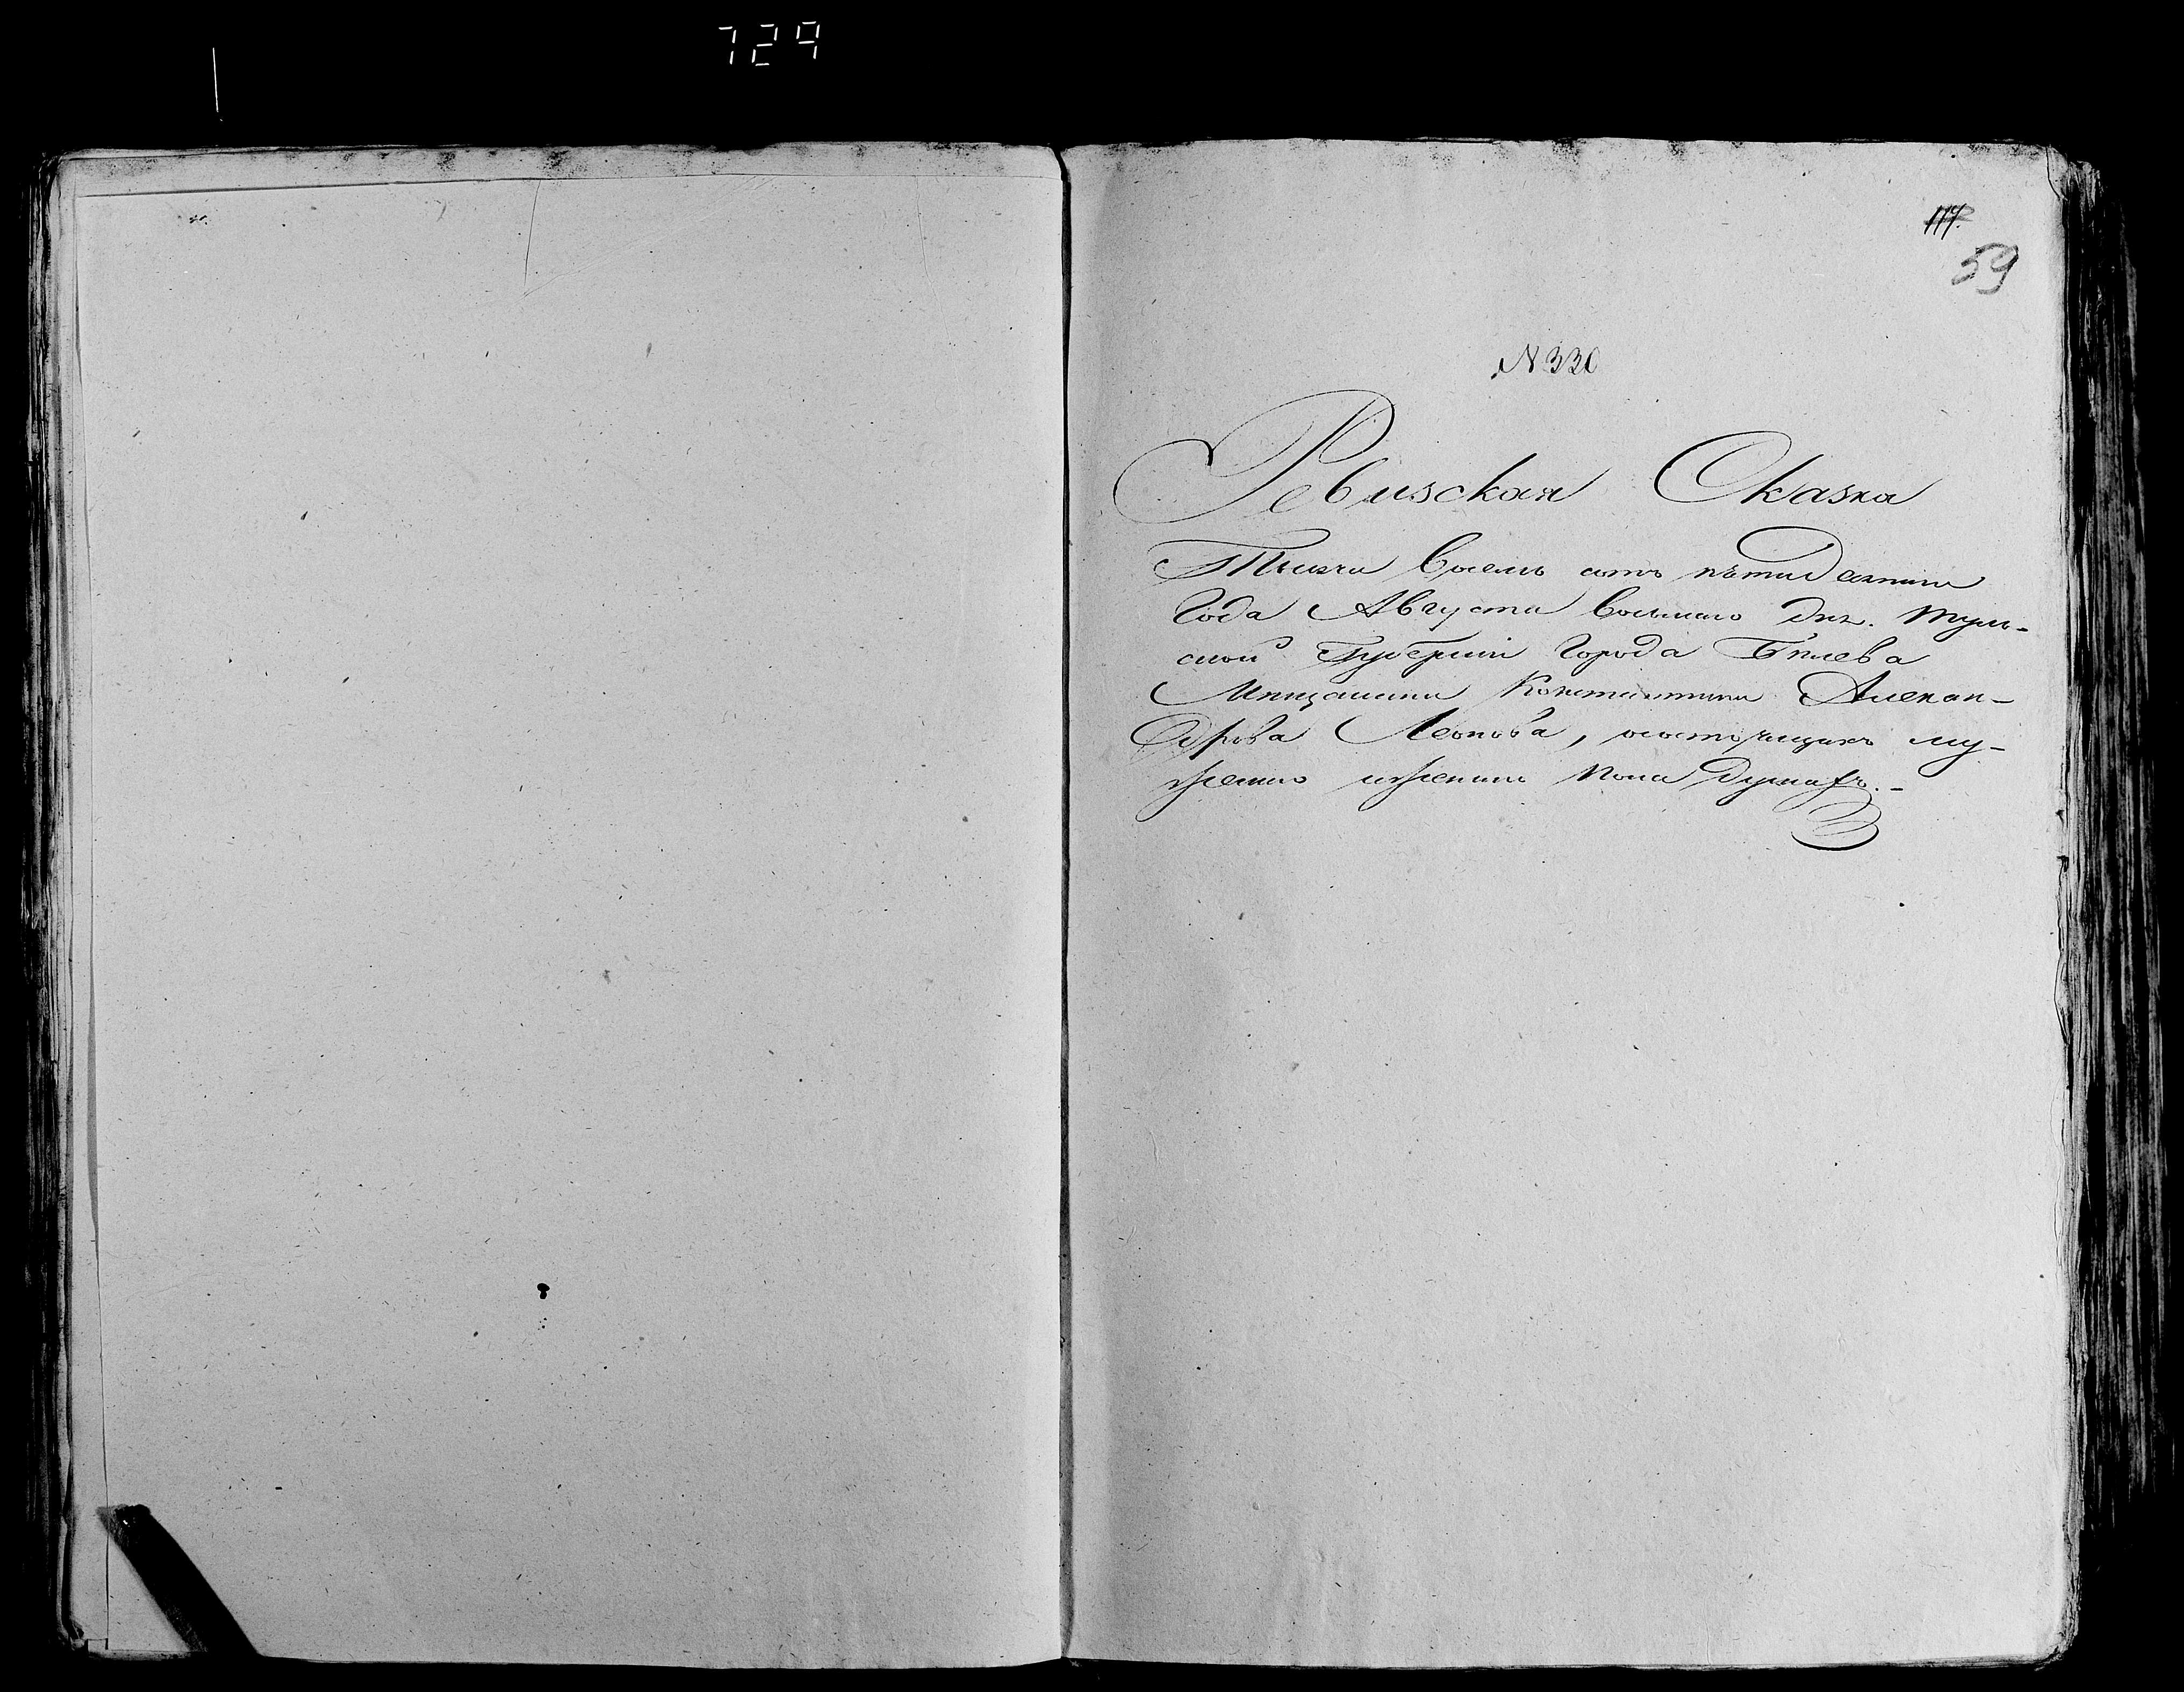 729
117.
59
N 330
Ревизская Сказка
Тысяча восемь сотъ пѣтидесятаго
Года Августа восьмаго дня. Туль-
ской Губерніи Города Бѣлева
Мѣщанина Константина Алексан-
дрова Леонова, осостоящихъ му-
жеска иженска пола душахъ.-